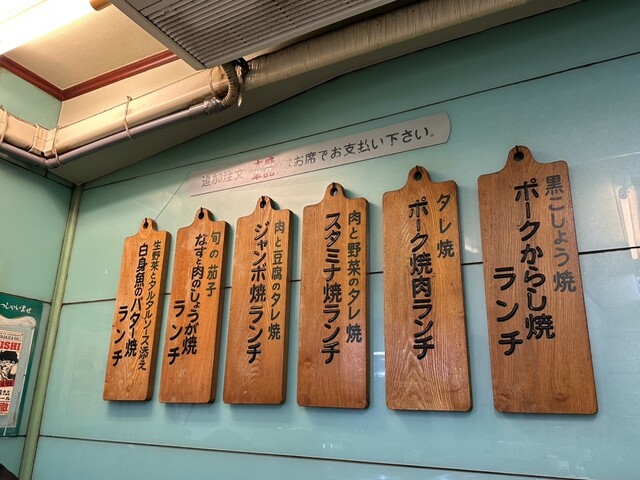 追加注文、はお席でお支払い下さい。
黒こしょう焼
ポークからし焼
ランチ
タレ焼
ポーク焼肉ランチ
肉と野菜のタレ焼
スタミナ焼ランチ
肉と豆腐のタレ焼
ジャンボ焼ランチ
旬の茄子
なすと肉のしょうが焼
ランチ
生野菜とタルタルソース添え
白身魚のバター焼
ランチ
っしゃいませ